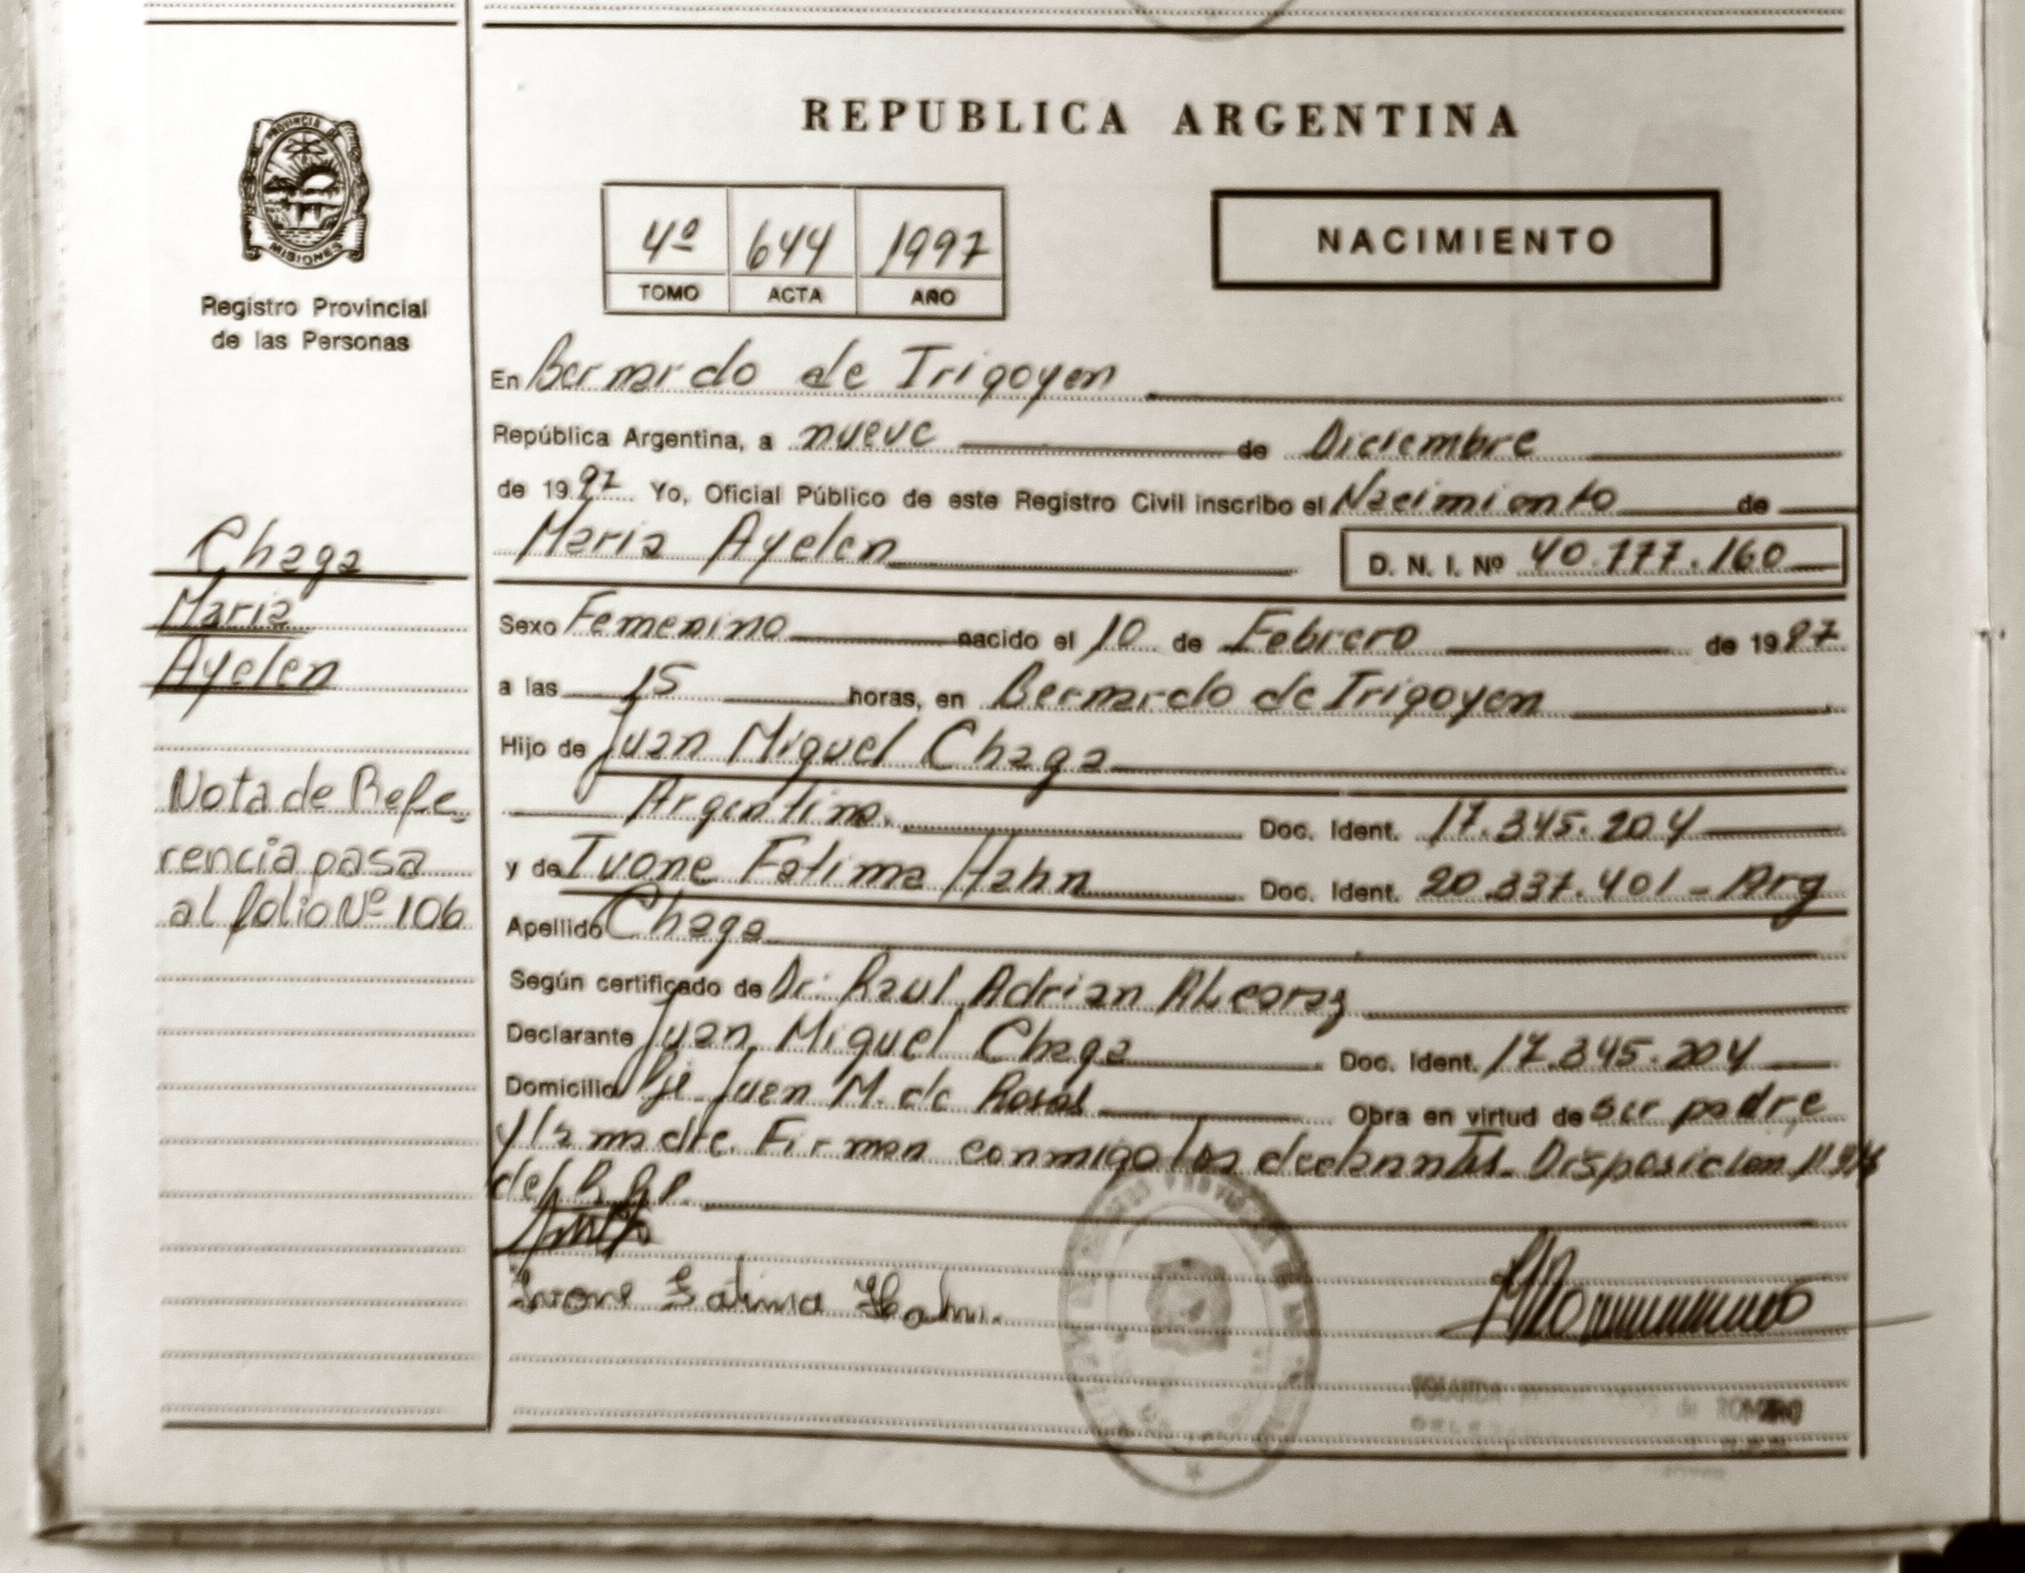 PROVINCIA DE
MISIONES
Registro Provincial
de las Personas
Chaga
Maria
Ayelen
Nota de Refe
rencia pasa
al folio Nº 106
REPUBLICA ARGENTINA
4º 644 1997
TOMO ACTA AÑO
NACIMIENTO
En Bernardo de Irigoyen
República Argentina, a nueve de Diciembre
de 1997 Yo, Oficial Público de este Registro Civil inscribo el Nacimiento de
Maria Ayelen D. N. I. Nº 40.777.160
Sexo Femenino nacido el 10 de Febrero de 1997
a las 15 horas, en Bernardo de Irigoyen
Hijo de Juan Miguel Chaga
Argentino. Doc. Ident. 17.345.204
y de Ivone Fatima Hahn Doc. Ident. 20.337.401 - Arg
Apellido Chaga
Según certificado de Dr. Raul Adrian
Declarante Juan Miguel Chaga Doc. Ident. 17.345.204
Domicilio Pje Juan M. de Rosas Obra en virtud de ser padre
y la madre. Firman conmigo los declarantes. Disposicion
del
Ivone Fatima Hahn.
de ROMERO